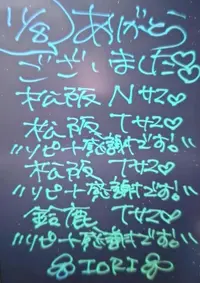 1/8 ありがとう
ございました♡
松阪 Nサマ♡
松阪 Tサマ♡
"リピート感謝です!"
松阪 Tサマ♡
"リピート感謝です!"
鈴鹿 Tサマ♡
"リピート感謝です!"
IORI